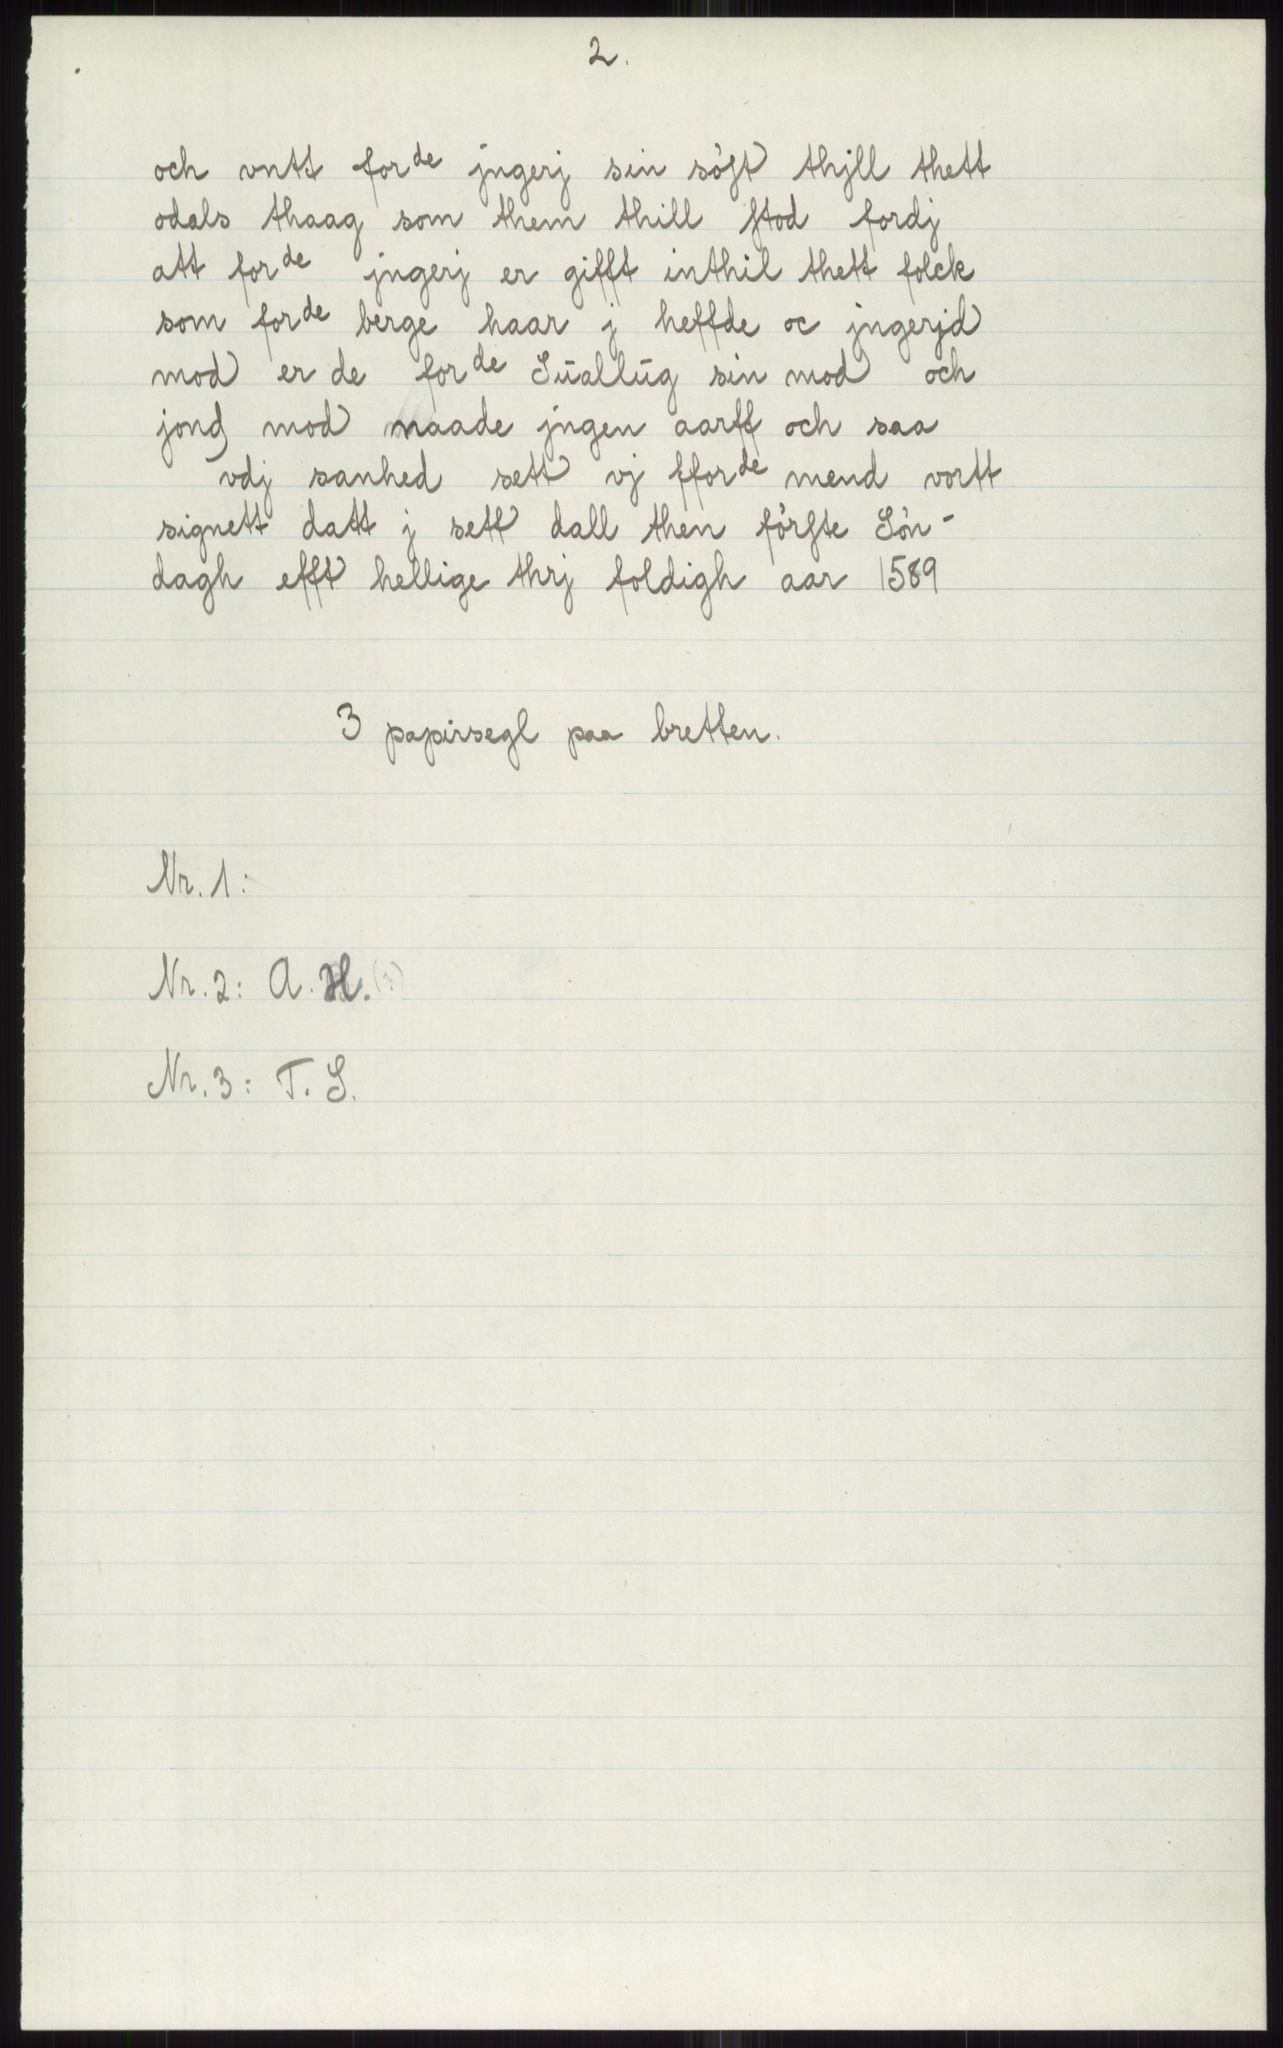 2.
och vntt for de jngerj sin söst thjll thett
odals thaag som them thill stod fordj
att for de jngerj er gifft inthil thett folck
som for de berge haar j heffde oc jngerjd
mod er de for de Suallug sin mod och
jong mod maade jngen aarff och saa
vdj sanhed sett vj ffor de mend vortt
signett datt j sett dall then förste Sön-
dagh efft hellige thrj foldigh aar 1589
3 papirsegl paa bretten.
Nr. 1:
Nr. 2: A. H. (?)
Nr. 3: T. S.